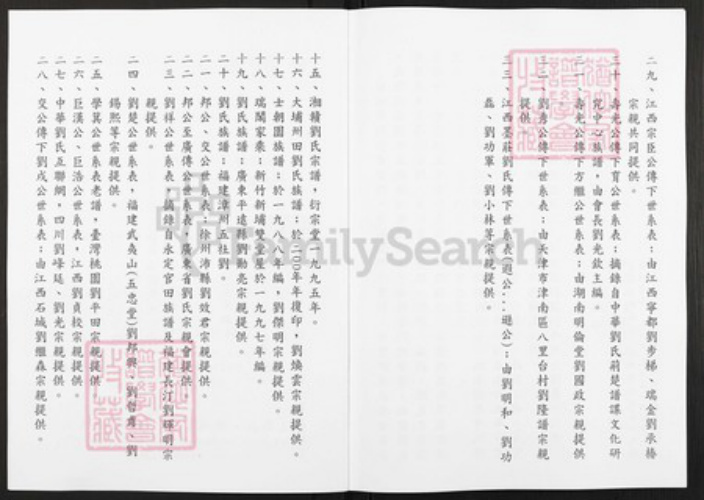 十五、湘贛劉氏宗譜,衍宗堂一九九五年。
十六、大埔州田劉氏族譜;於二000年年復印,劉煥雲宗親提供。
十七、士朝園族譜;於一九八八年編,劉傑明宗親提供。
十八、瑞閣家乘;新竹新埔雙堂屋於一九九七年編。
十九、劉氏族譜;廣東平遠縣劉勛亮宗親提供。
二十、劉氏族譜;福建漳州五社劉。
二一、邦公、交公世系表;徐州沛縣劉效君宗親提供。
二二、邦公至廣傳公世系表,廣東省劉氏宗親會提供。
二三、劉祥公世系表,摘錄自永定官田族譜及福建長汀劉暉明宗
親提供。
二四、劉楚公世系表,福建武夷山(五忠堂)劉邦興、劉哲壽、劉
錫熙等宗親提供。
二五、學萁公世系表老譜,臺灣桃園劉平田宗親提供。
二六、巨漢公、巨浩公世系表,江西劉貞校宗親提供。
二七、中華劉氏互聯網,四川劉峰延、劉光宗親提供。
二八、交公傳下劉戍公世系表;由江西石城劉繼森宗親提供。
二九、江西宗臣公傳下世系表;由江西寧都劉步梯、瑞金劉承椿
宗親共同提供。
三十、壽光公傳下育公世系表;摘錄自中華劉氏荊楚譜諜文化研
究中心族譜,由會長劉光欽主編。
三一、壽光公傳下方繼公世系表;由湖南明倫堂劉國政宗親提供
三二、劉秀公傳下世系表;由天津市津南區八里台村劉隆譜宗親
提供。
三三、江西墨莊劉氏傳下世系表(遐公...遜公);由劉明和、劉功
磊、劉功軍、劉小林等宗親提供。
FamilySearch